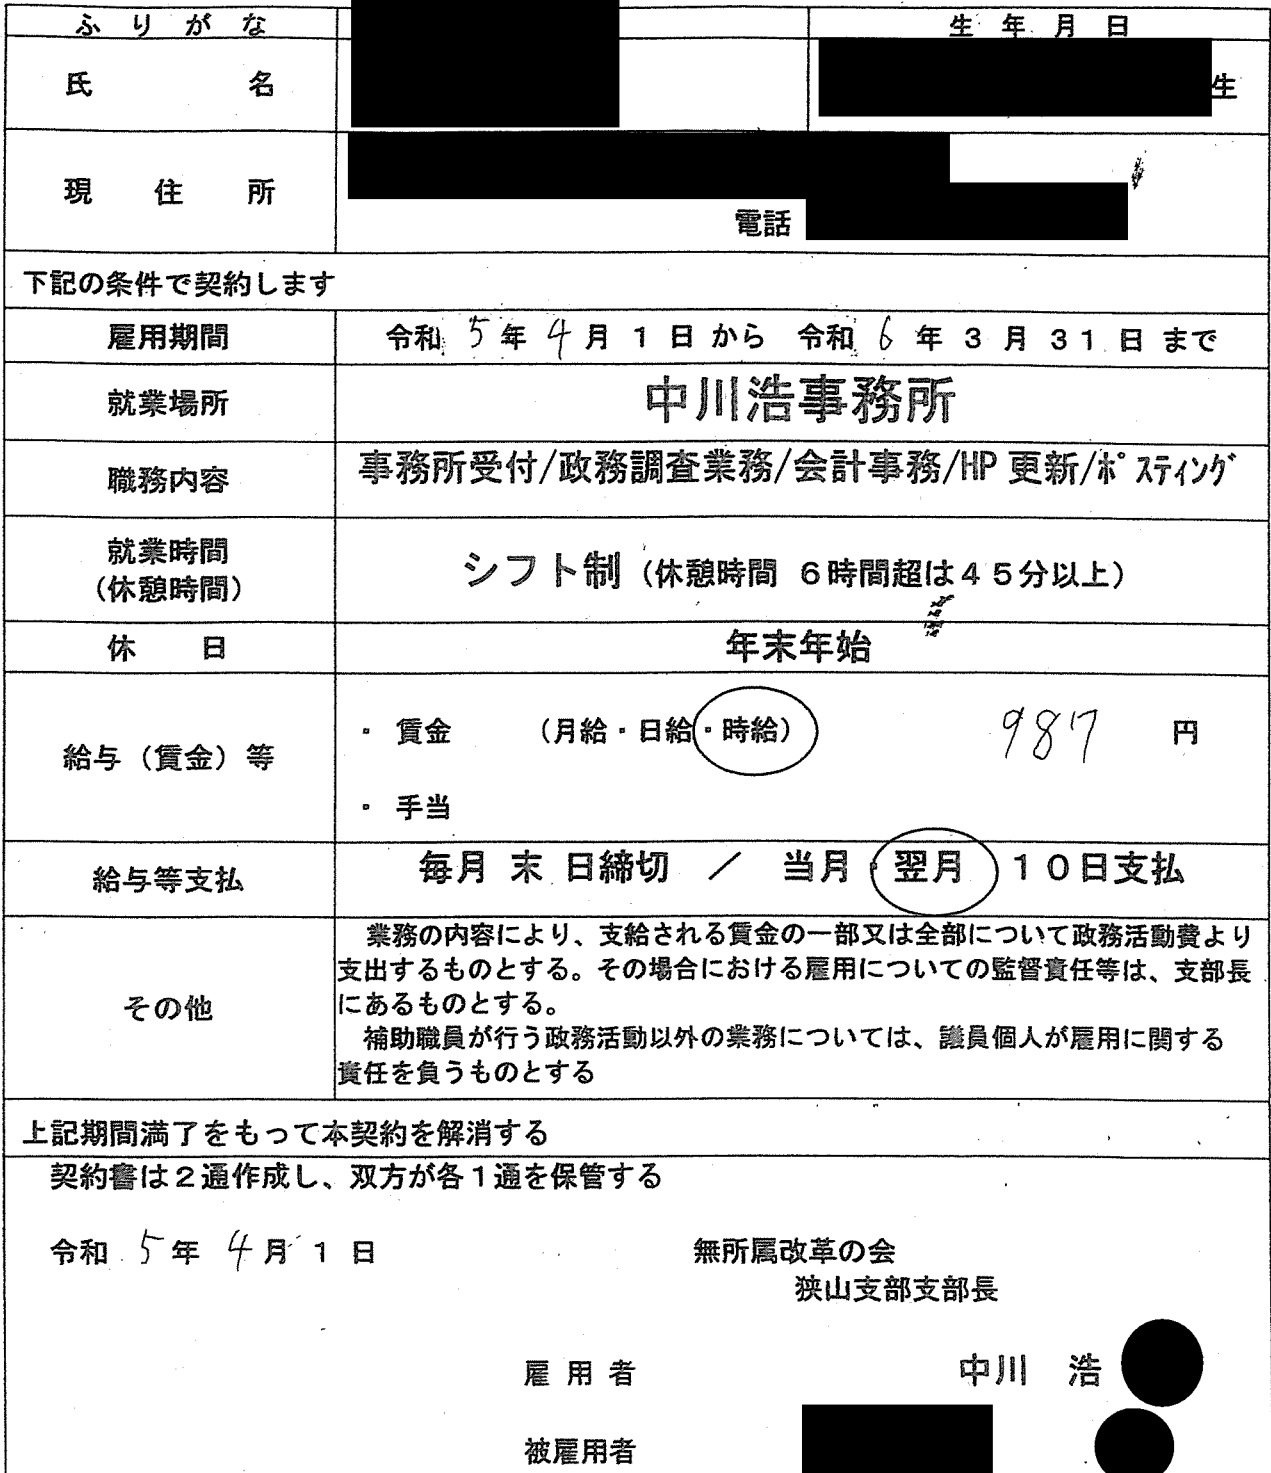 ふりがな
生年月日
氏名
生
現住所
電話
下記の条件で契約します
雇用期間
令和 5 年 4 月 1 日 から 令和 6 年 3 月 31 日 まで
就業場所
中川浩事務所
職務内容
事務所受付/政務調査業務/会計事務/HP更新/ポスティング
就業時間
(休憩時間)
シフト制(休憩時間 6時間超は45分以上)
休日
年末年始
給与(賃金)等
・賃金 (月給・日給・時給) 987 円
・手当
給与等支払
毎月 末 日締切 / 当月・翌月 10日支払
その他
業務の内容により、支給される賃金の一部又は全部について政務活動費より
支出するものとする。その場合における雇用についての監督責任等は、支部長
にあるものとする。
補助職員が行う政務活動以外の業務については、議員個人が雇用に関する
責任を負うものとする
上記期間満了をもって本契約を解消する
契約書は2通作成し、双方が各1通を保管する
令和 5 年 4 月 1 日
無所属改革の会
狭山支部支部長
雇用者 中川 浩
被雇用者